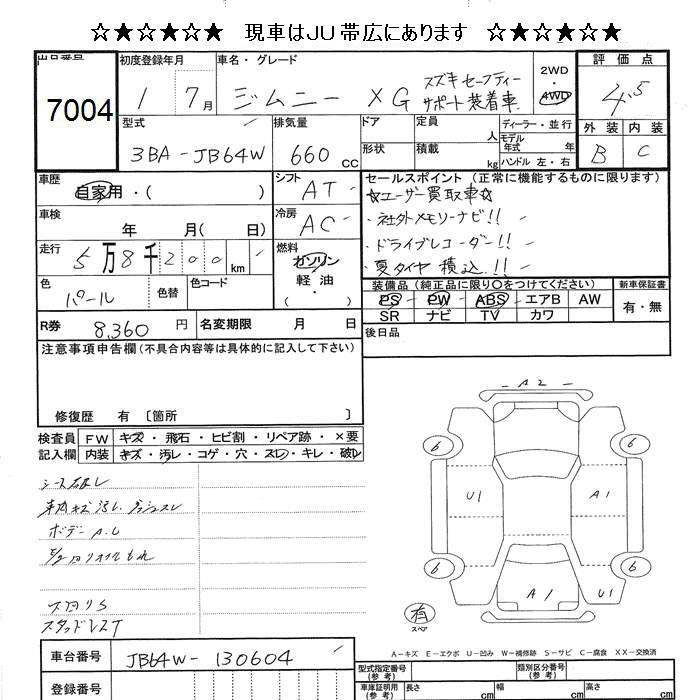 ☆★☆★☆★ 現車はJU帯広にあります ☆★☆★☆★
出品番号 初度登録年月 車名・グレード 2WD・4WD 評価点
7004 1 7月 ジムニー XG スズキセーフティーサポート装着車 4.5
型式 排気量 ドア 定員 人 ディーラー・並行 外装 内装
3BA-JB64W 660cc 形状 積載 kg モデル年式 年 ハンドル 左・右 B C
車歴 自家用・( ) シフト AT
セールスポイント (正常に機能するものに限ります)
☆ユーザー買取車☆
・社外メモリーナビ!!
・ドライブレコーダー!!
・夏タイヤ積込!!
車検 年 月( 日) 冷房 AC
走行 5万8千200km 燃料 ガソリン 軽油・( )
色 パール 色替 色コード
装備品 (純正品に限り○をつけてください) 新車保証書
PS PW ABS エアB AW 有・無
SR ナビ TV カワ
R券 8,360円 名変期限 月 日
後日品
注意事項申告欄 (不具合内容等は具体的に記入して下さい)
修復歴 有 〔箇所 〕
検査員記入欄 FW キズ・飛石・ヒビ割・リペア跡・×要
内装 キズ・汚レ・コゲ・穴・スレ・キレ・破レ
シート破レ
車内キズ汚レ.ダッシュスレ
ボデーA.U
下回りS
スタッドレスT
A2
6 6
U1 A1
6 6
A1 U1
有
スペア
A-キズ E-エクボ U-凹み W-補修跡 S-サビ C-腐食 XX-交換済
車台番号 JB64W-130604
型式指定番号(参考) 類別区分番号(参考)
登録番号
車庫証明用(参考) 長さ cm 幅 cm 高さ cm